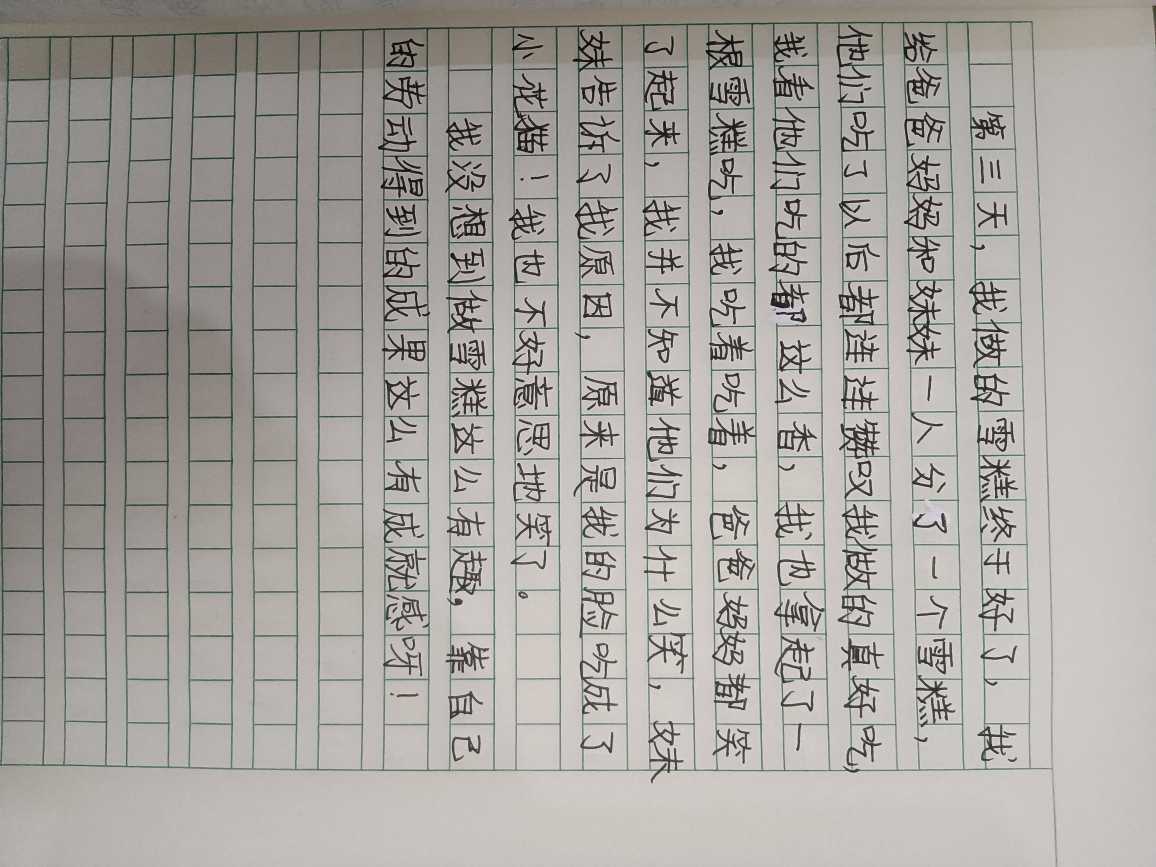 第三天，我做的雪糕终于好了，我
给爸爸妈妈和妹妹一人分了一个雪糕，
他们吃了以后都连连赞叹我做的真好吃，
我看他们吃的都这么香，我也拿起了一
根雪糕吃，我吃着吃着，爸爸妈妈都笑
了起来，我并不知道他们为什么笑，妹
妹告诉了我原因，原来是我的脸吃成了
小花猫！我也不好意思地笑了。
我没想到做雪糕这么有趣，靠自己
的劳动得到的成果这么有成就感呀！